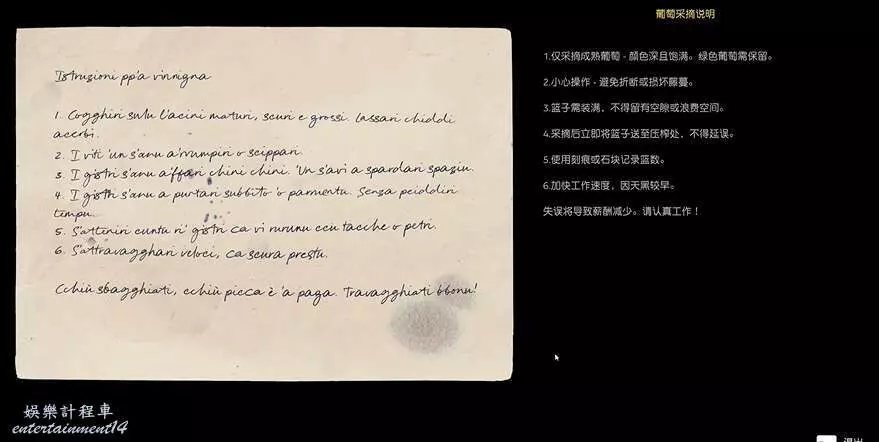 Istruzioni pp'a vinnigna
1. Cogghiri sulu l'acini maturi, scuri e grossi. Lassari chiddi
acerbi.
2. I viti 'un s'anu a'rrumpiri o scippari.
3. I gistri s'anu a ffari chini chini. 'Un s'avi a spardari spaziu.
4. I gistri s'anu a purtari subbito 'o parmentu. Senza peiddiri
tempu.
5. S'atteniri cuntu ri' gistri ca vi rurunu ccu tacche o petri.
6. S'attravagghari veloci, ca scura prestu.
Cchiù sbagghiati, cchiù picca è 'a paga. Travagghiati bbonu!
葡萄采摘说明
1.仅采摘成熟葡萄 - 颜色深且饱满。绿色葡萄需保留。
2.小心操作 - 避免折断或损坏藤蔓。
3.篮子需装满，不得留有空隙或浪费空间。
4.采摘后立即将篮子送至压榨处，不得延误。
5.使用刻痕或石块记录篮数。
6.加快工作速度，因天黑较早。
失误将导致薪酬减少。请认真工作！
娛樂計程車
entertainment14